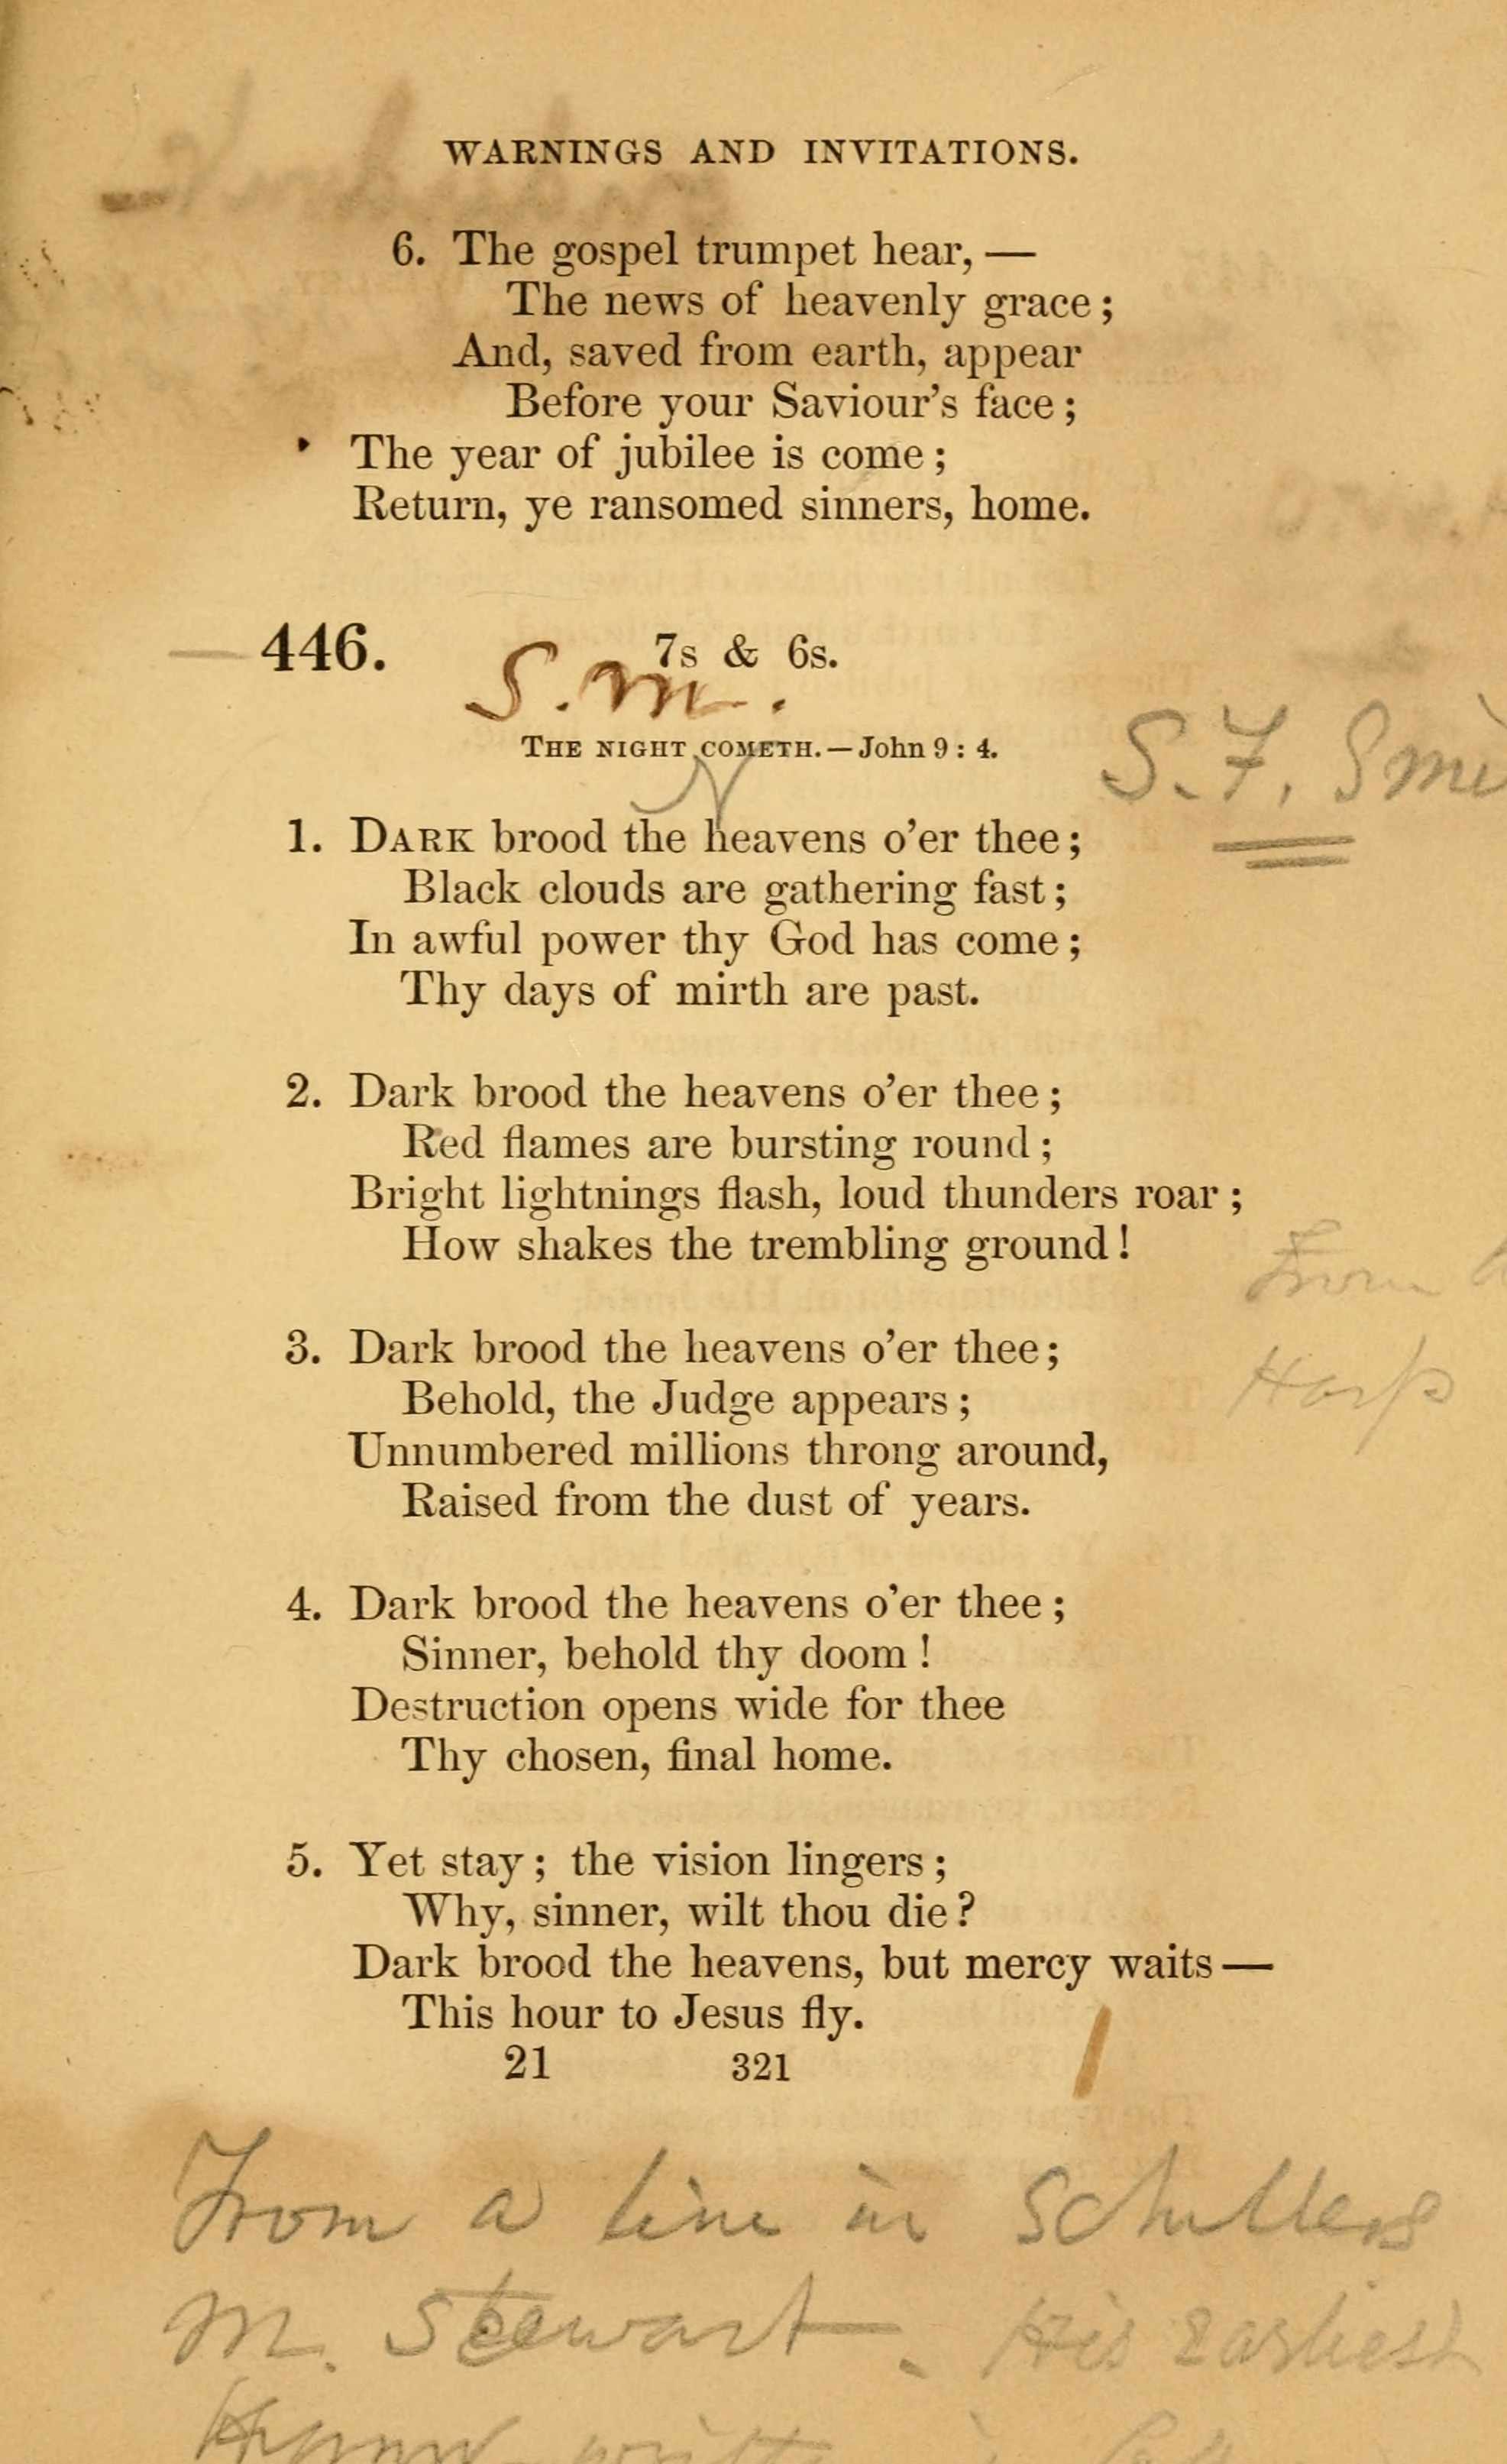 WARNINGS AND INVITATIONS.
6. The gospel trumpet hear, —
The news of heavenly grace;
And, saved from earth, appear
Before your Saviour's face;
The year of jubilee is come;
Return, ye ransomed sinners, home.
446. 7s & 6s.
S.M.
THE NIGHT COMETH.—John 9 : 4.
S. F. Smi
1. DARK brood the heavens o'er thee;
Black clouds are gathering fast;
In awful power thy God has come;
Thy days of mirth are past.
2. Dark brood the heavens o'er thee;
Red flames are bursting round;
Bright lightnings flash, loud thunders roar;
How shakes the trembling ground!
From
3. Dark brood the heavens o'er thee;
Harp
Behold, the Judge appears;
Unnumbered millions throng around,
Raised from the dust of years.
4. Dark brood the heavens o'er thee;
Sinner, behold thy doom!
Destruction opens wide for thee
Thy chosen, final home.
5. Yet stay; the vision lingers;
Why, sinner, wilt thou die?
Dark brood the heavens, but mercy waits—
This hour to Jesus fly.
21 321
From a line in Schillers
M. Stewart. His Earliest
Hymn written in